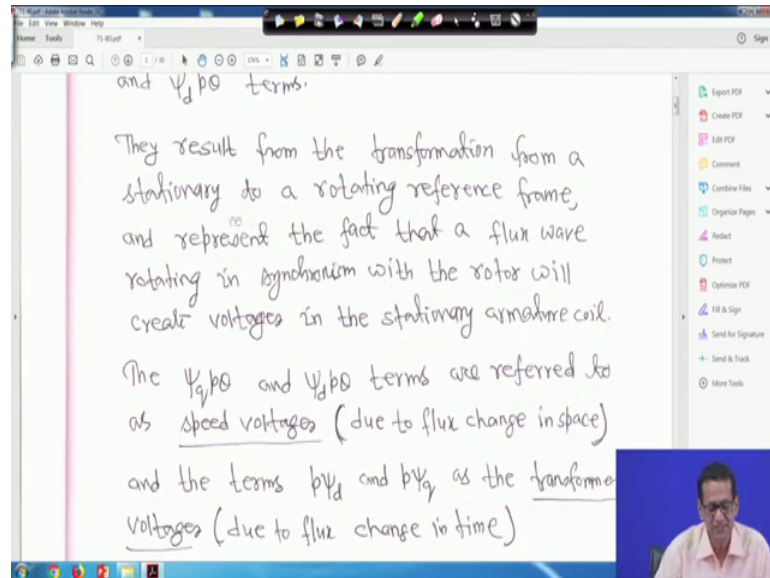 File Edit View Window Help
Home Tools 71-80.pdf × Sign
1
and ψd pθ terms.
They result from the transformation from a
stationary to a rotating reference frame,
and represent the fact that a flux wave
rotating in synchronism with the rotor will
create voltages in the stationary armature coil.
The ψq pθ and ψd pθ terms are referred to
as speed voltages (due to flux change in space)
and the terms pψd and pψq as the transforme
voltages (due to flux change in time)
Export PDF
Create PDF
Edit PDF
Comment
Combine Files
Organize Pages
Redact
Protect
Optimize PDF
Fill & Sign
Send for Signature
Send & Track
More Tools